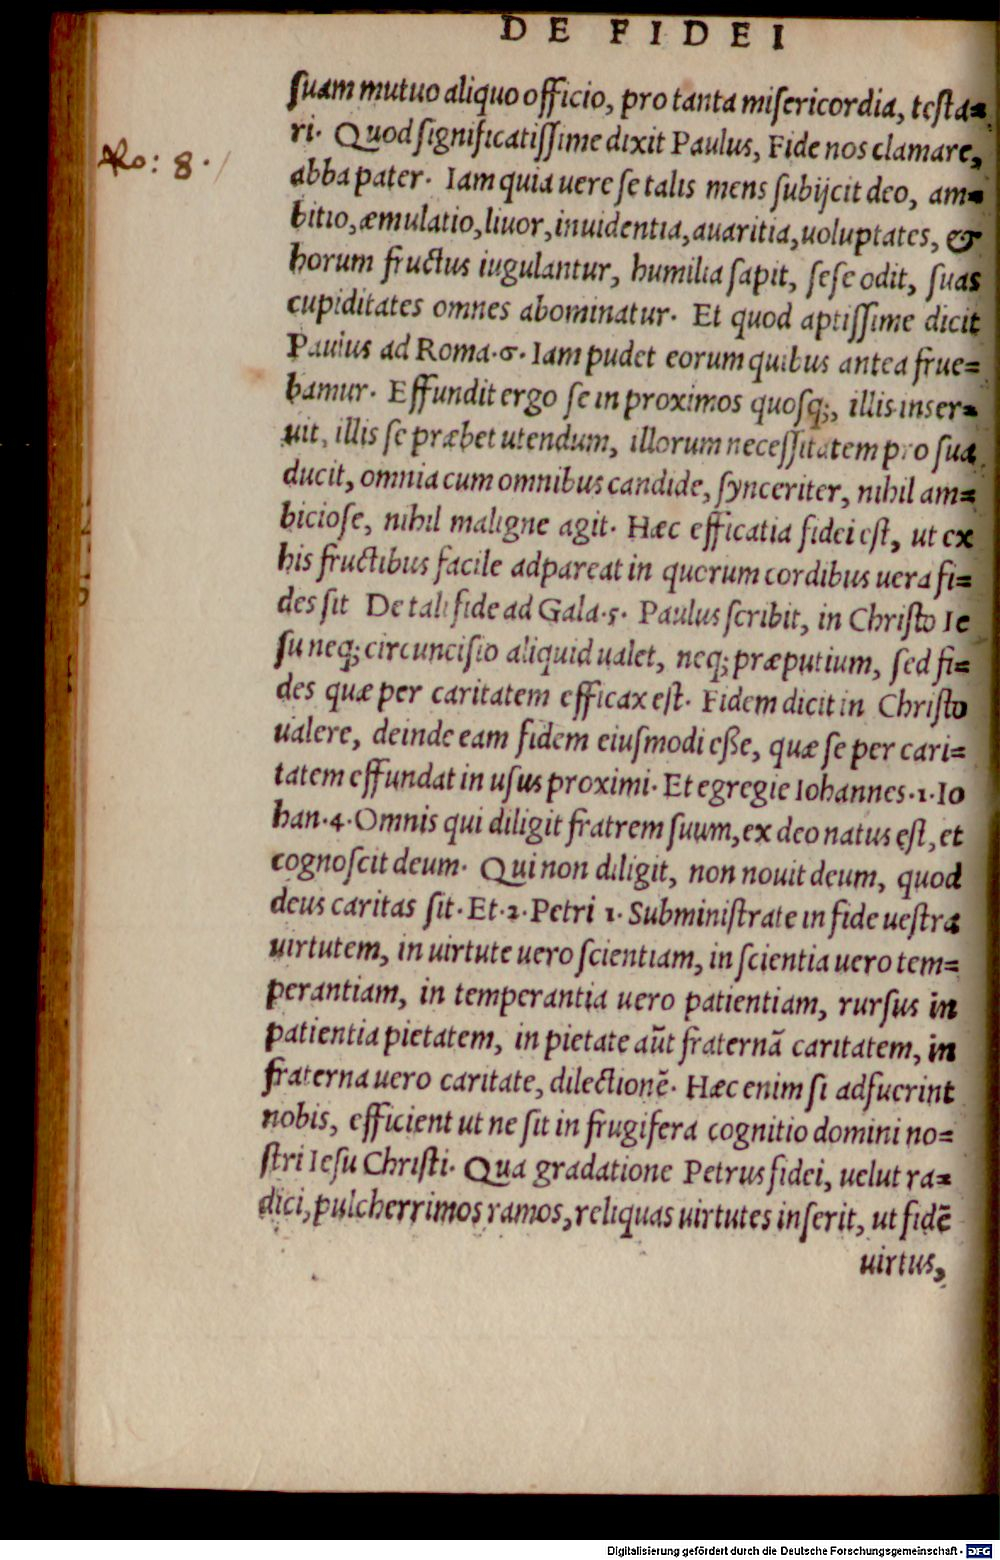 DE FIDEI
ſuam mutuo aliquo officio, pro tanta miſericordia, teſta=
ri. Quod ſignificatiſſime dixit Paulus, Fide nos clamare,
Ro: 8.
abba pater. Iam quia uere ſe talis mens ſubijcit deo, am=
bitio, æmulatio, liuor, inuidentia, auaritia, uoluptates, &
horum fructus iugulantur, humilia ſapit, ſeſe odit, ſuas
cupiditates omnes abominatur. Et quod aptiſſime dicit
Paulus ad Roma.6. Iam pudet eorum quibus antea frue=
bamur. Effundit ergo ſe in proximos quoſq;, illis inser=
uit, illis ſe præbet utendum, illorum neceſſitatem pro ſua
ducit, omnia cum omnibus candide, ſynceriter, nihil am=
bicioſe, nihil maligne agit. Hæc efficatia fidei eſt, ut ex
his fructibus facile adpareat in quorum cordibus uera fi=
des ſit De tali fide ad Gala.5. Paulus ſcribit, in Chriſto Ie
ſu neq; circunciſio aliquid ualet, neq; præputium, ſed fi=
des quæ per caritatem efficax eſt. Fidem dicit in Chriſto
ualere, deinde eam fidem eiuſmodi eße, quæ ſe per cari=
tatem effundat in uſus proximi. Et egregie Iohannes.1.Io
han.4. Omnis qui diligit fratrem ſuum, ex deo natus eſt, et
cognoſcit deum. Qui non diligit, non nouit deum, quod
deus caritas ſit. Et.2.Petri 1. Subminiſtrate in fide ueſtra
uirtutem, in uirtute uero ſcientiam, in ſcientia uero tem=
perantiam, in temperantia uero patientiam, rurſus in
patientia pietatem, in pietate aūt fraternā caritatem, in
fraterna uero caritate, dilectionē. Hæc enim ſi adfuerint
nobis, efficient ut ne ſit in frugifera cognitio domini no=
ſtri Ieſu Chriſti. Qua gradatione Petrus fidei, uelut ra=
dici, pulcherrimos ramos, reliquas uirtutes inſerit, ut fidē
uirtus,
Digitalisierung gefördert durch die Deutsche Forschungsgemeinschaft - DFG